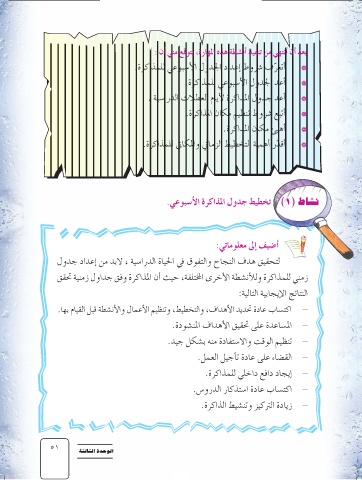 بعد أن أنتهي من تنفيذ أنشطة هذه المهارة، يتوقع مني أن:
أتعرّف شروط إعداد الجدول الأسبوعي للمذاكرة.
أعد الجدول الأسبوعي للمذاكرة.
أعد جدول المذاكرة لأيام العطلات الدراسية.
أتبع شروط تنظيم مكان المذاكرة.
أهيئ مكان المذاكرة.
أقدر أهمية التخطيط الزماني والمكاني للمذاكرة.
نشاط (١) تخطيط جدول المذاكرة الأسبوعي.
أضيف إلى معلوماتي:
لتحقيق هدف النجاح والتفوق في الحياة الدراسية، لابد من إعداد جدول
زمني للمذاكرة وللأنشطة الأخرى المختلفة، حيث أن المذاكرة وفق جداول زمنية تحقق
النتائج الإيجابية التالية:
– اكتساب عادة تحديد الأهداف، والتخطيط، وتنظيم الأعمال والأنشطة قبل القيام بها.
– المساعدة على تحقيق الأهداف المنشودة.
– تنظيم الوقت والاستفادة منه بشكل جيد.
– القضاء على عادة تأجيل العمل.
– إيجاد دافع داخلي للمذاكرة.
– اكتساب عادة استذكار الدروس.
– زيادة التركيز وتنشيط الذاكرة.
الوحدة الثالثة
٥١